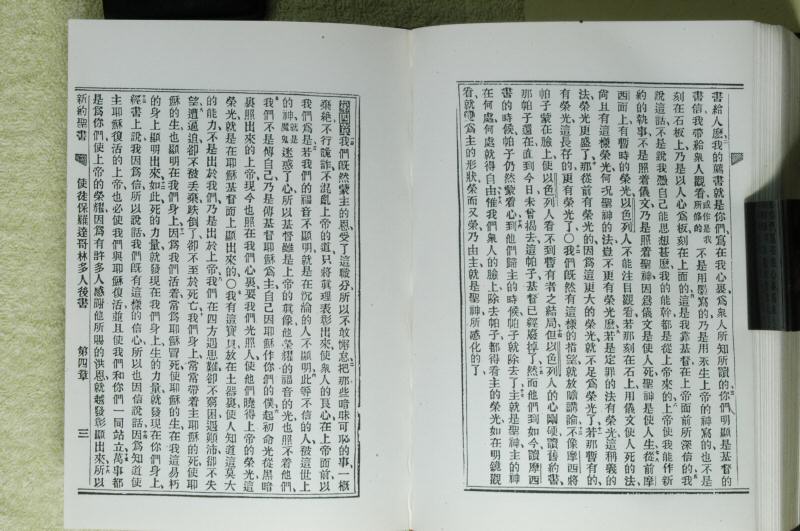 書給人麼我的薦書就是你們寫在我心裏爲衆人所知所讀的你們明顯是基督的
書信我帶給衆人觀看所修的或作是我不是用墨寫的乃是用永生上帝的神寫的也不是
刻在石板上乃是以人心爲板刻在上面的這是我靠基督在上帝面前所深信的我
說這話不是說我憑自己能思想甚麼我的能幹都是從上帝來的上帝使我能作新
約的執事不是照着儀文乃是照着聖神因爲儀文是使人死聖神是使人生從前摩
西面上有暫時的榮光以色列人不能注目觀看若那刻在石上用儀文使人死的法
尙且有這樣榮光何况聖神的法豈不更有榮光麽若是定罪的法有榮光這稱義的
法榮光更盛了那從前有榮光的因爲這更大的榮光就不足爲榮光了若那暫有的
有榮光這長存的更有榮光了〇我們既然有這樣的指望就放膽講論不像摩西將
帕子蒙在臉上使以色列人看不到暫有者之結局但以色列人的心剛硬讀舊約書
那帕子還在直到今日未曾揭去這帕子基督已經廢掉了然而他們到如今讀摩西
書的時候帕子仍然蒙着心到他們歸主的時候帕子就除去了主就是聖神主的神
在何處何處就得自由惟我們衆人的臉上除去帕子都得看主的榮光如在明鏡觀
看就變爲主的形狀榮而又榮乃由主就是聖神所感化的了
第四章我們既然蒙主的恩受了這職分所以不敢懈怠把那些暗昧可恥的事一概
棄絕不行詭詐不混亂上帝的道只將眞理表彰出來使衆人的良心在上帝面前以
我們爲是若我們的福音不顯明就是在沉淪的人不顯明此等不信的人被這世上
的神就是魔鬼迷惑了心所以基督雖是上帝的眞像他榮耀的福音的光也照不着他們
我們不是傳自己乃是傳基督耶穌爲主自己因耶穌作你們的僕起初命光從黑暗
裏照出來的上帝現今也照在我們心裏要我們光照人使他們曉得上帝的榮光這
榮光就是在耶穌基督面上顯出來的〇我有這寶貝放在土器裏使人知道這莫大
的能力不是出於我們乃是出於上帝我們在四方遇患難卻不窮困遇顛沛卻不失
望遭逼迫卻不被丢棄跌倒了卻不至於死亡我們身上常常帶着主耶穌的死使耶
穌的生也顯明在我們身上因爲我們活着常爲耶穌冒死使耶穌的生在我這易朽
的身上顯明出來如此死的力量就發現在我們身上生的力量就發現在你們身上
經書上說我因爲信所以說話我們既有這樣的信心所以也因信說話因爲知道使
主耶穌復活的上帝也必使我們與耶穌復活並且使我們和你們一同站立萬事都
是爲你們使上帝的榮耀因爲有許多人感謝他所賜的洪恩就越發彰顯出來所以
新約聖書 使徒保羅達哥林多人後書 第四章 三